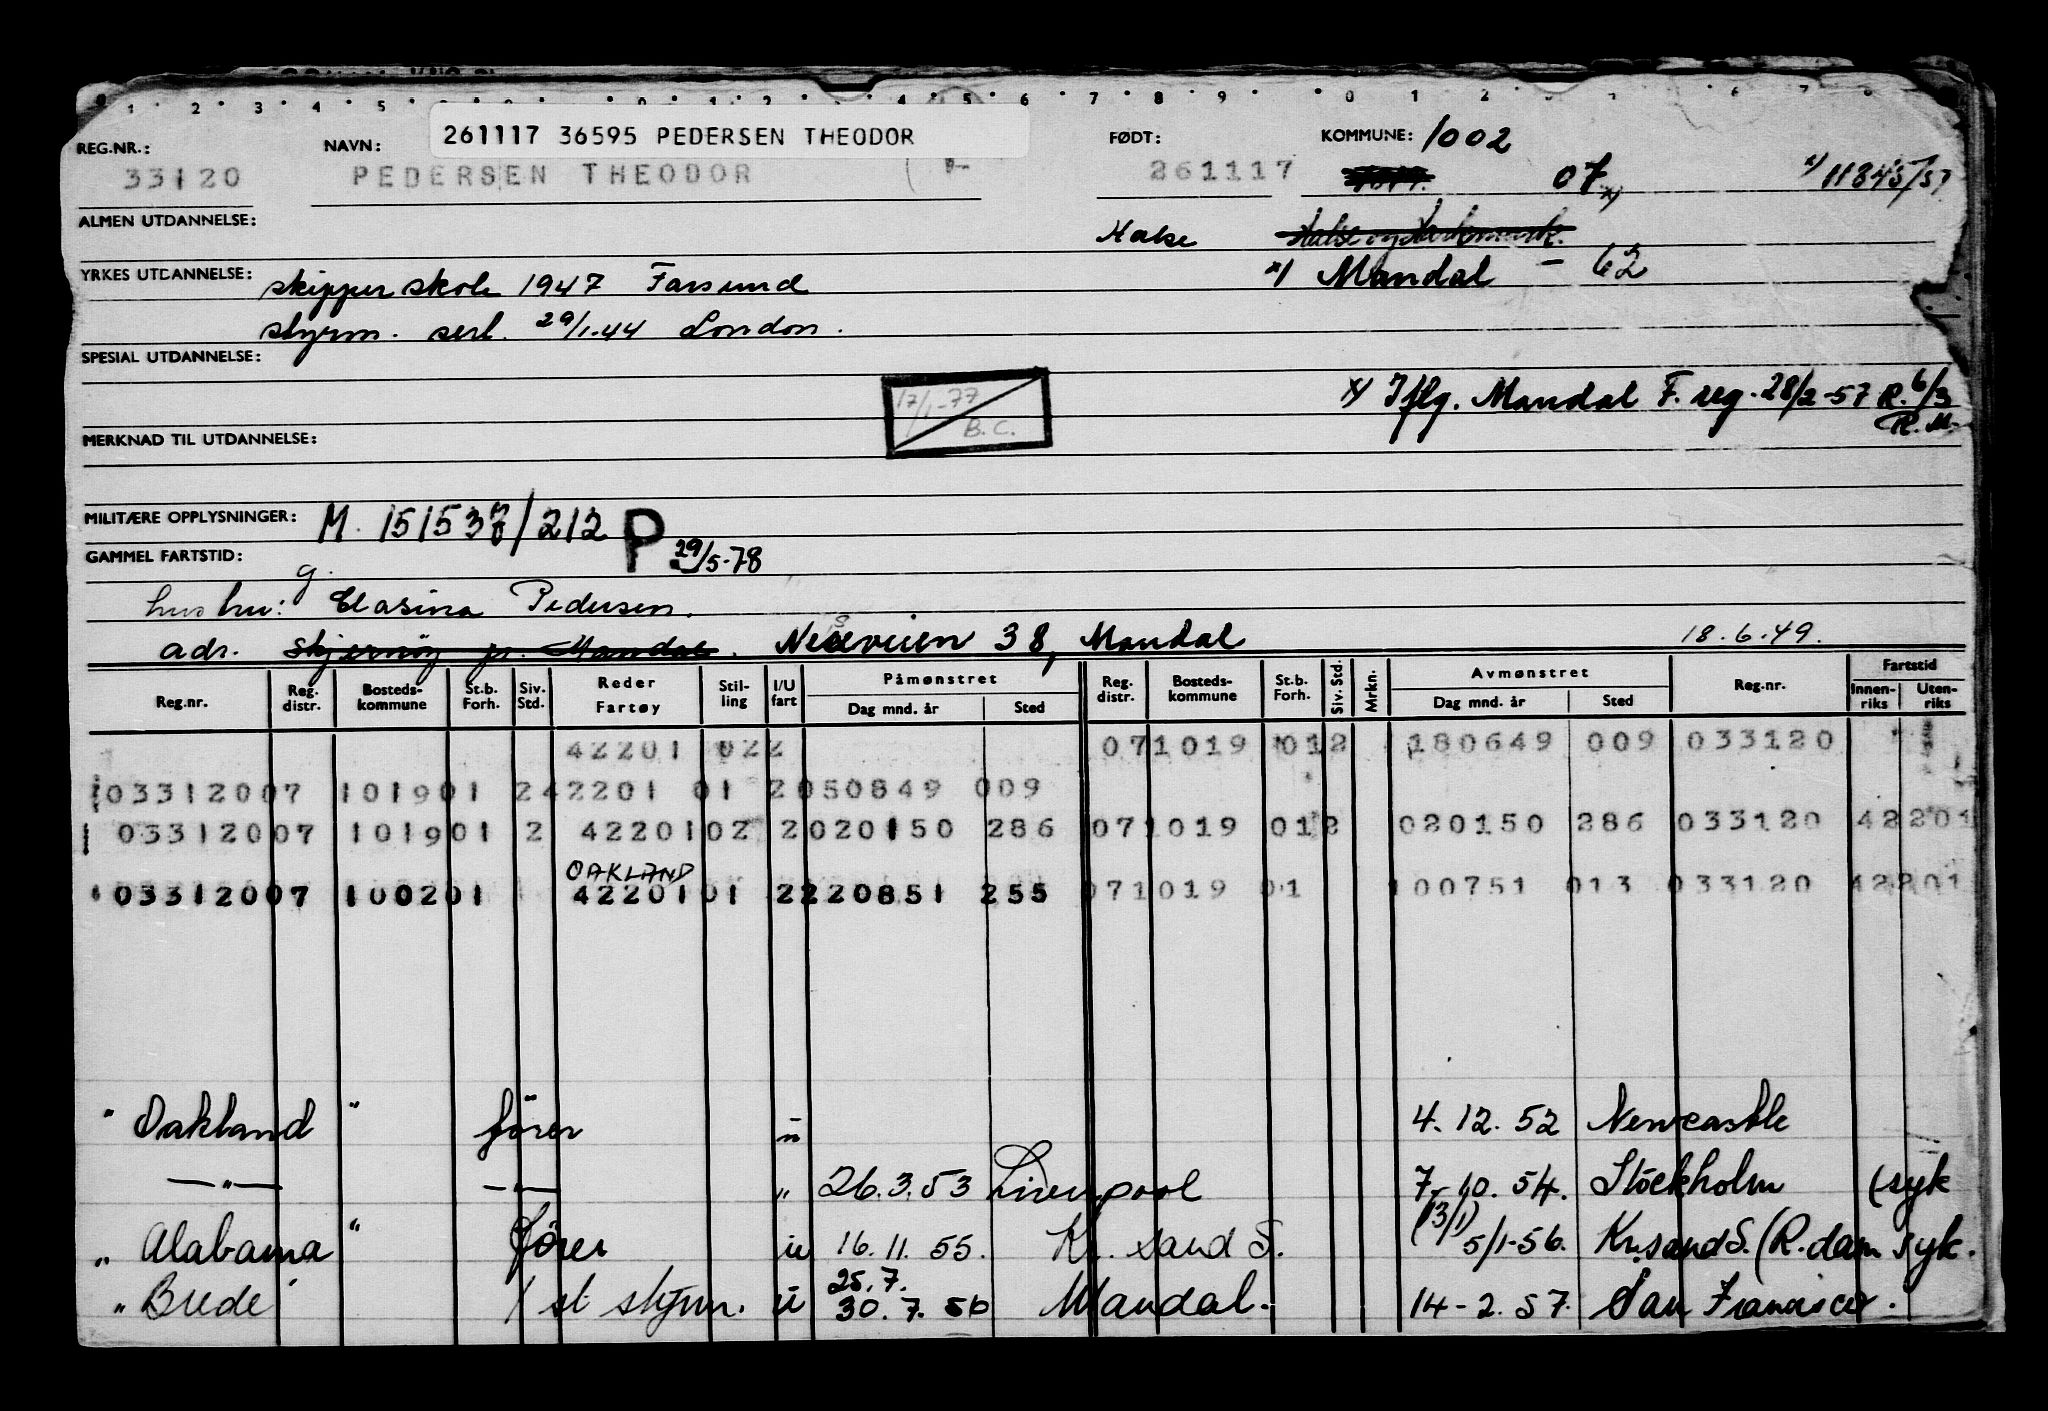 1 2 3 4 5 0 1 2 4 5 6 7 8 9 0 1 2 6 7 8
261117 36595 PEDERSEN THEODOR
REG.NR.: NAVN: FØDT: KOMMUNE: 1002
33120 PEDERSEN THEODOR 261117 07 x) x) 11845/57
ALMEN UTDANNELSE: Halse
YRKES UTDANNELSE: skipperskole 1947 Farsund x) Mandal - 62
styrm. sert. 29/1.44 London.
SPESIAL UTDANNELSE:
17/1-77 B.C.
x) Iflg. Mandal F. reg. 28/2-57 R. 6/3
R.M.
MERKNAD TIL UTDANNELSE:
MILITÆRE OPPLYSNINGER: M. 151537/212 P 29/5-78
GAMMEL FARTSTID:
g.
hustru: Clasina Pedersen.
adr. Skjernøy pr. Mandal. Nesveien 38, Mandal 18.6.49.
Reg.nr. Reg. distr. Bosteds-kommune St.b. Forh. Siv. Std. Reder Fartøy Stil-ling I/U fart Påmønstret Dag mnd. år Sted Reg. distr. Bosteds-kommune St.b. Forh. Siv. Std. Mrkn. Avmønstret Dag mnd. år Sted Reg.nr. Fartstid Innen-riks Uten-riks
42201 022 071019 012 180649 009 033120
03312007 101901 242201 01 2050849 009
03312007 101901 2 4220102 2020150 286 071019 012 020150 286 033120 42201
OAKLAND
03312007 100201 4220101 2220851 255 071019 01 100751 013 033120 42201
" Oakland " fører u 4.12.52 Newcastle
—"— —"— " 26.3.53 Liverpool 7-10.54. Stockholm (syk
" Alabama " fører u 16.11.55. Kr. sand S. (13/1) 5/1-56. Kr.sand S. (R.dam syk.
25.7.
" Brede 1st styrm. u 30.7.56 Mandal. 14-2.57. San Francisco.